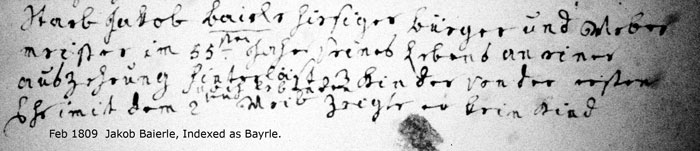 Starb Jakob Baierle hiesiger bürger und Weber
meister im 55sten Jahr seines Lebens an einer
auszehrung hinterläßt Kinder von der ersten
Ehe mit dem 2 Weib Zeigte er kein Kind
Feb 1809 Jakob Baierle, Indexed as Bayrle.